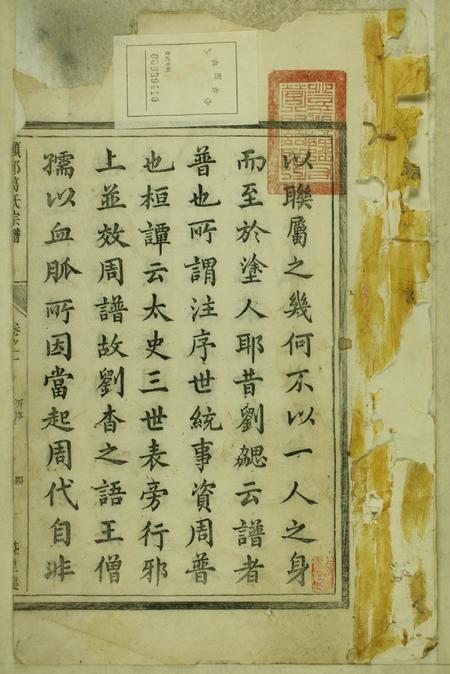 以聯屬之幾何不以一人之身
而至於塗人耶昔劉勰云譜者
普也所謂注序世統事資周普
也桓譚云太史三世表旁行邪
上並效周譜故劉杳之語王僧
孺以血脈所因當起周代自非
葛氏宗譜
卷之一
四